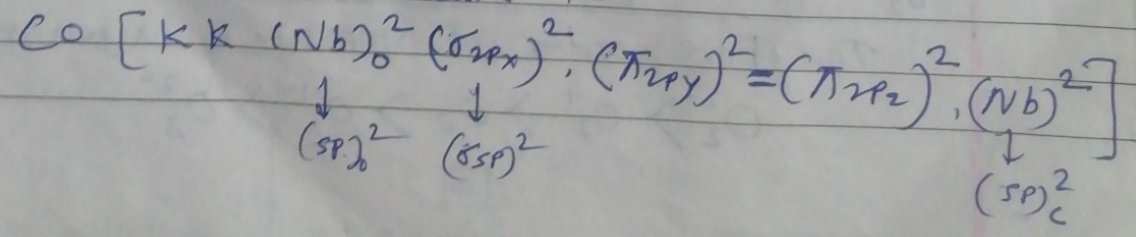 CO [KK (Nb)₀² (σ2px)². (π2py)² = (π2pz)². (Nb)²]
↓ ↓ ↓
(sp)₀² (σsp)² (sp)c²